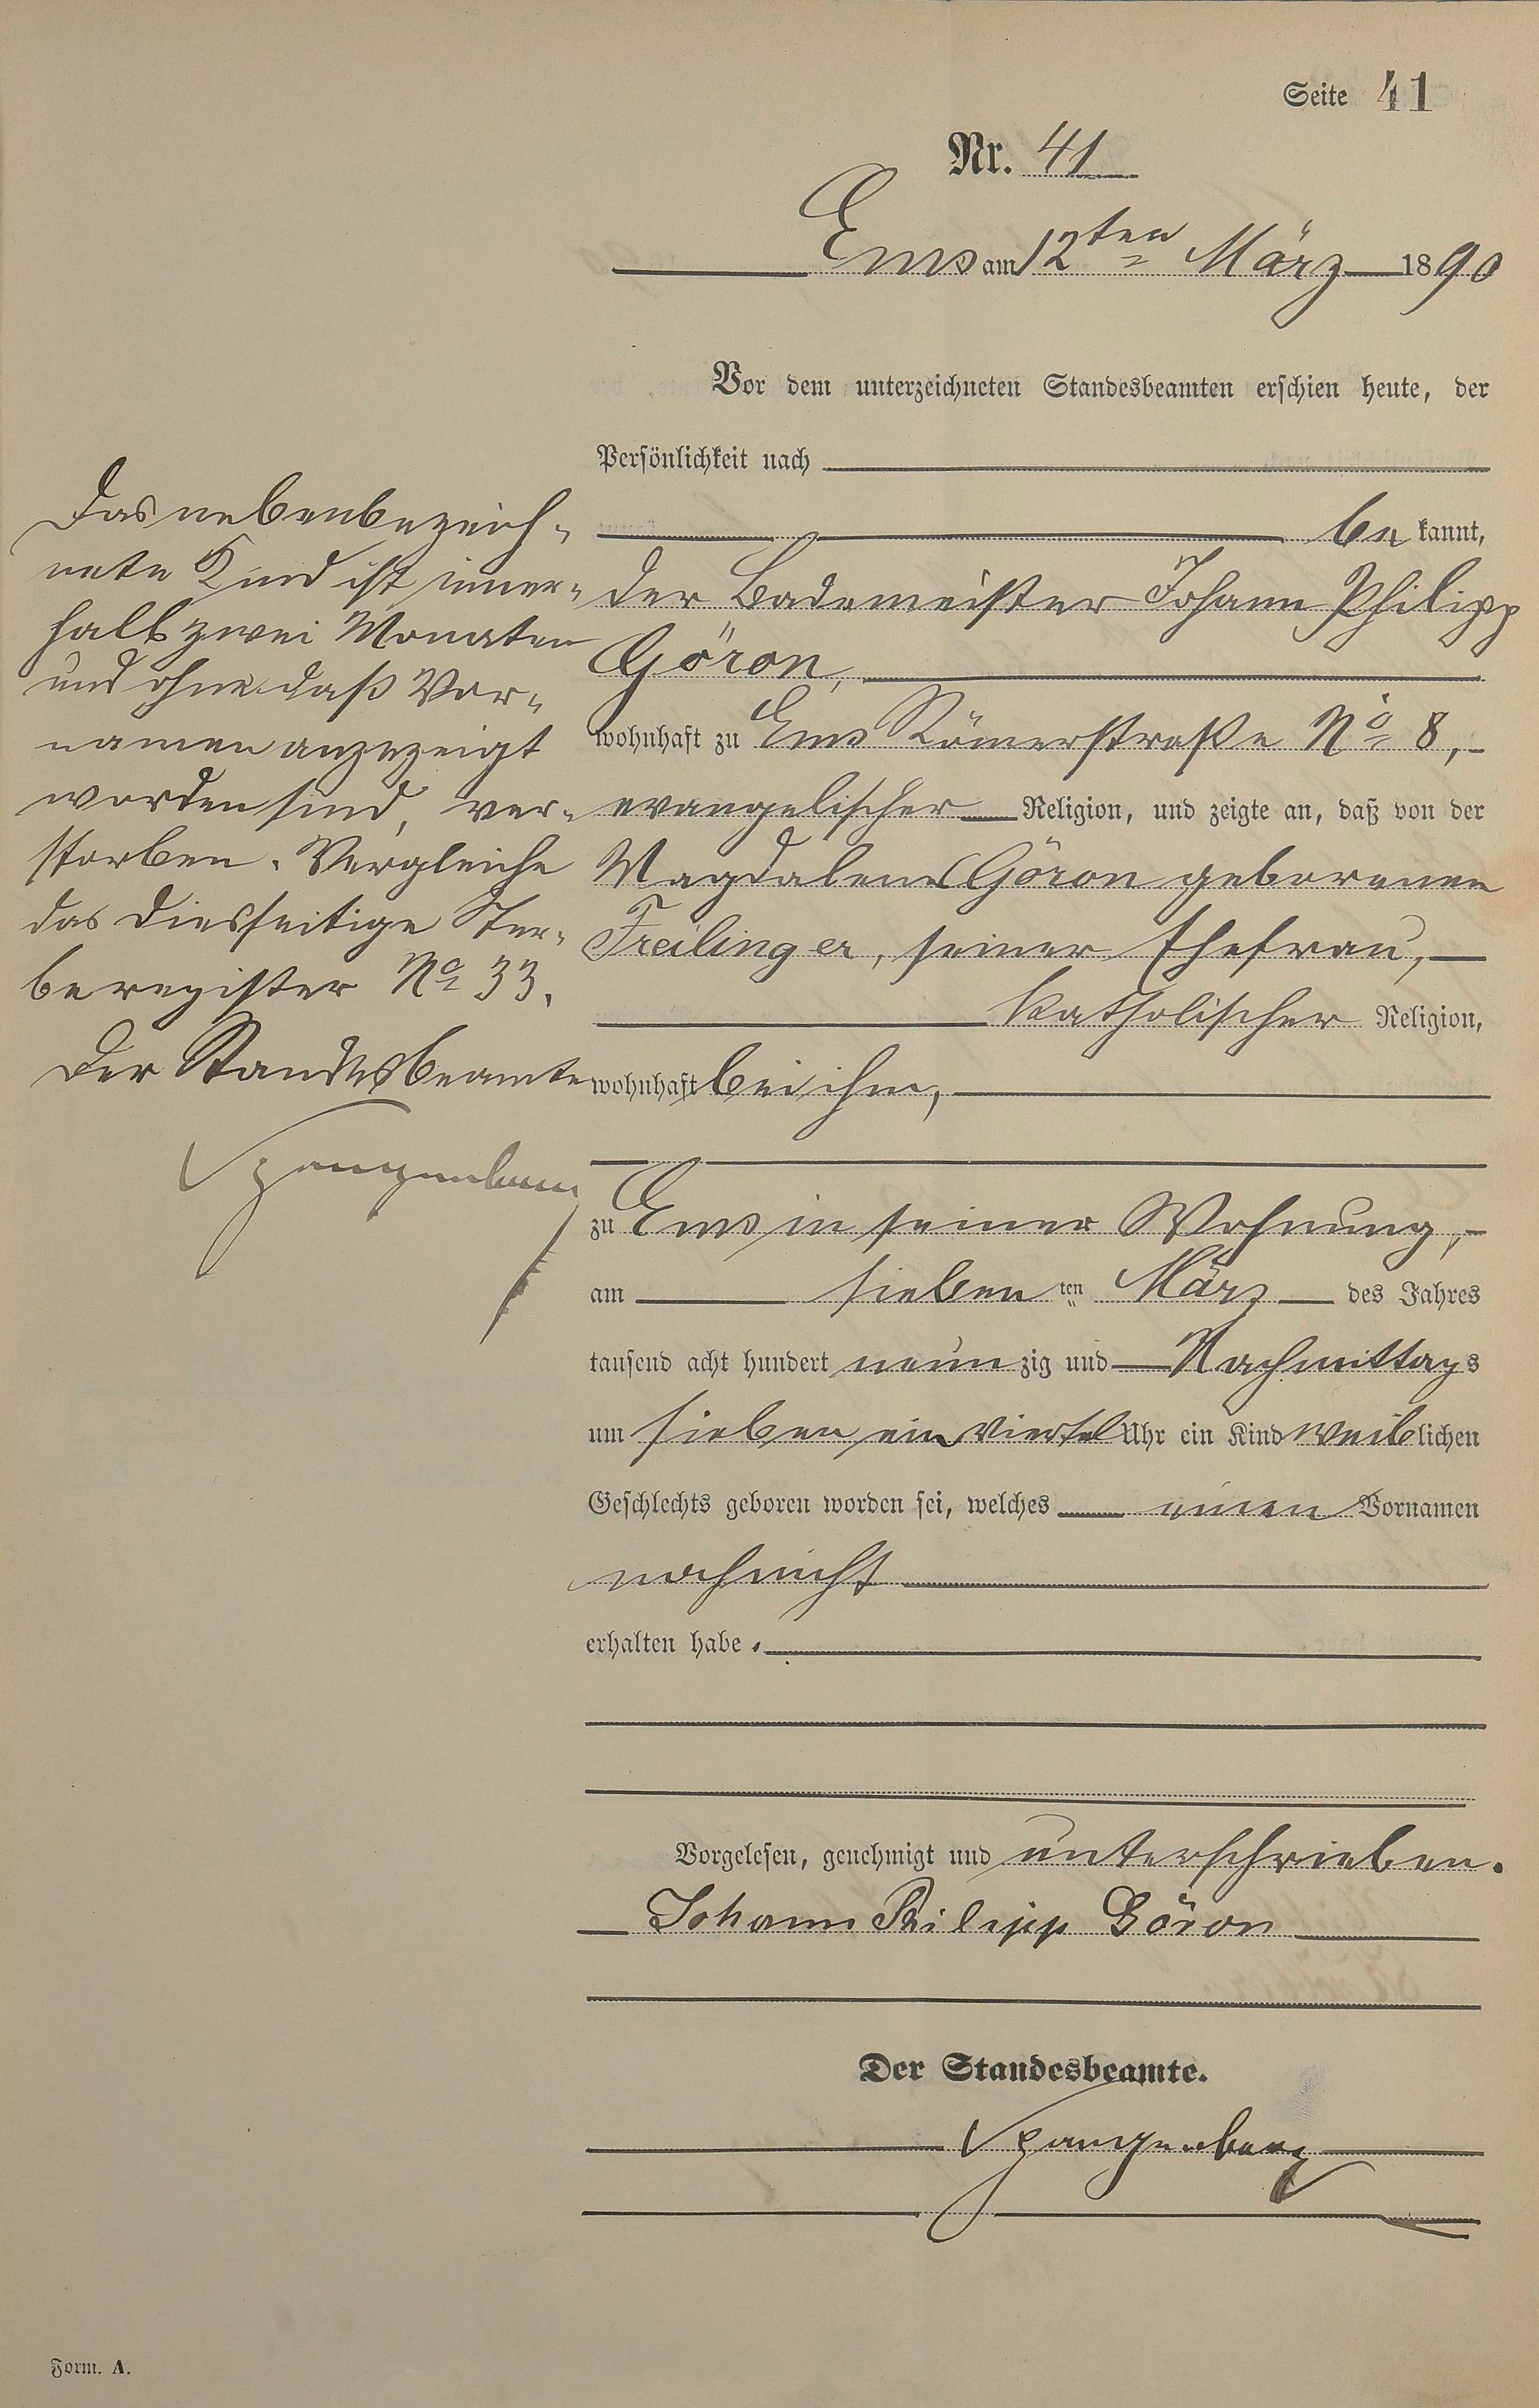 Seite 41
Nr. 41
Ems am 12ten März 1890
Vor dem unterzeichneten Standesbeamten erschien heute, der
Persönlichkeit nach
be kannt,
der Bademeister Johann Philipp
Göron,
wohnhaft zu Ems Römerstraße No 8,
evangelischer Religion, und zeigte an, daß von der
Magdalena Göron geborenen
Freilinger, seiner Ehefrau,
katholischer Religion,
wohnhaft bei ihm,
zu Ems in seiner Wohnung,
am sieben ten März des Jahres
tausend acht hundert neun zig und Nachmittags
um sieben ein viertel Uhr ein Kind weib lichen
Geschlechts geboren worden sei, welches einen Vornamen
noch nicht
erhalten habe.
Vorgelesen, genehmigt und unterschrieben.
Johann Philipp Göron
Der Standesbeamte.
Spangenberg
Das nebenbezeich-
nete Kind ist inner-
halb zwei Monaten
und ohne daß Vor-
namen angezeigt
worden sind, ver-
storben. Vergleiche
das diesseitige Ster-
beregister No 33.
Der Standesbeamte
Spangenberg
Form. A.